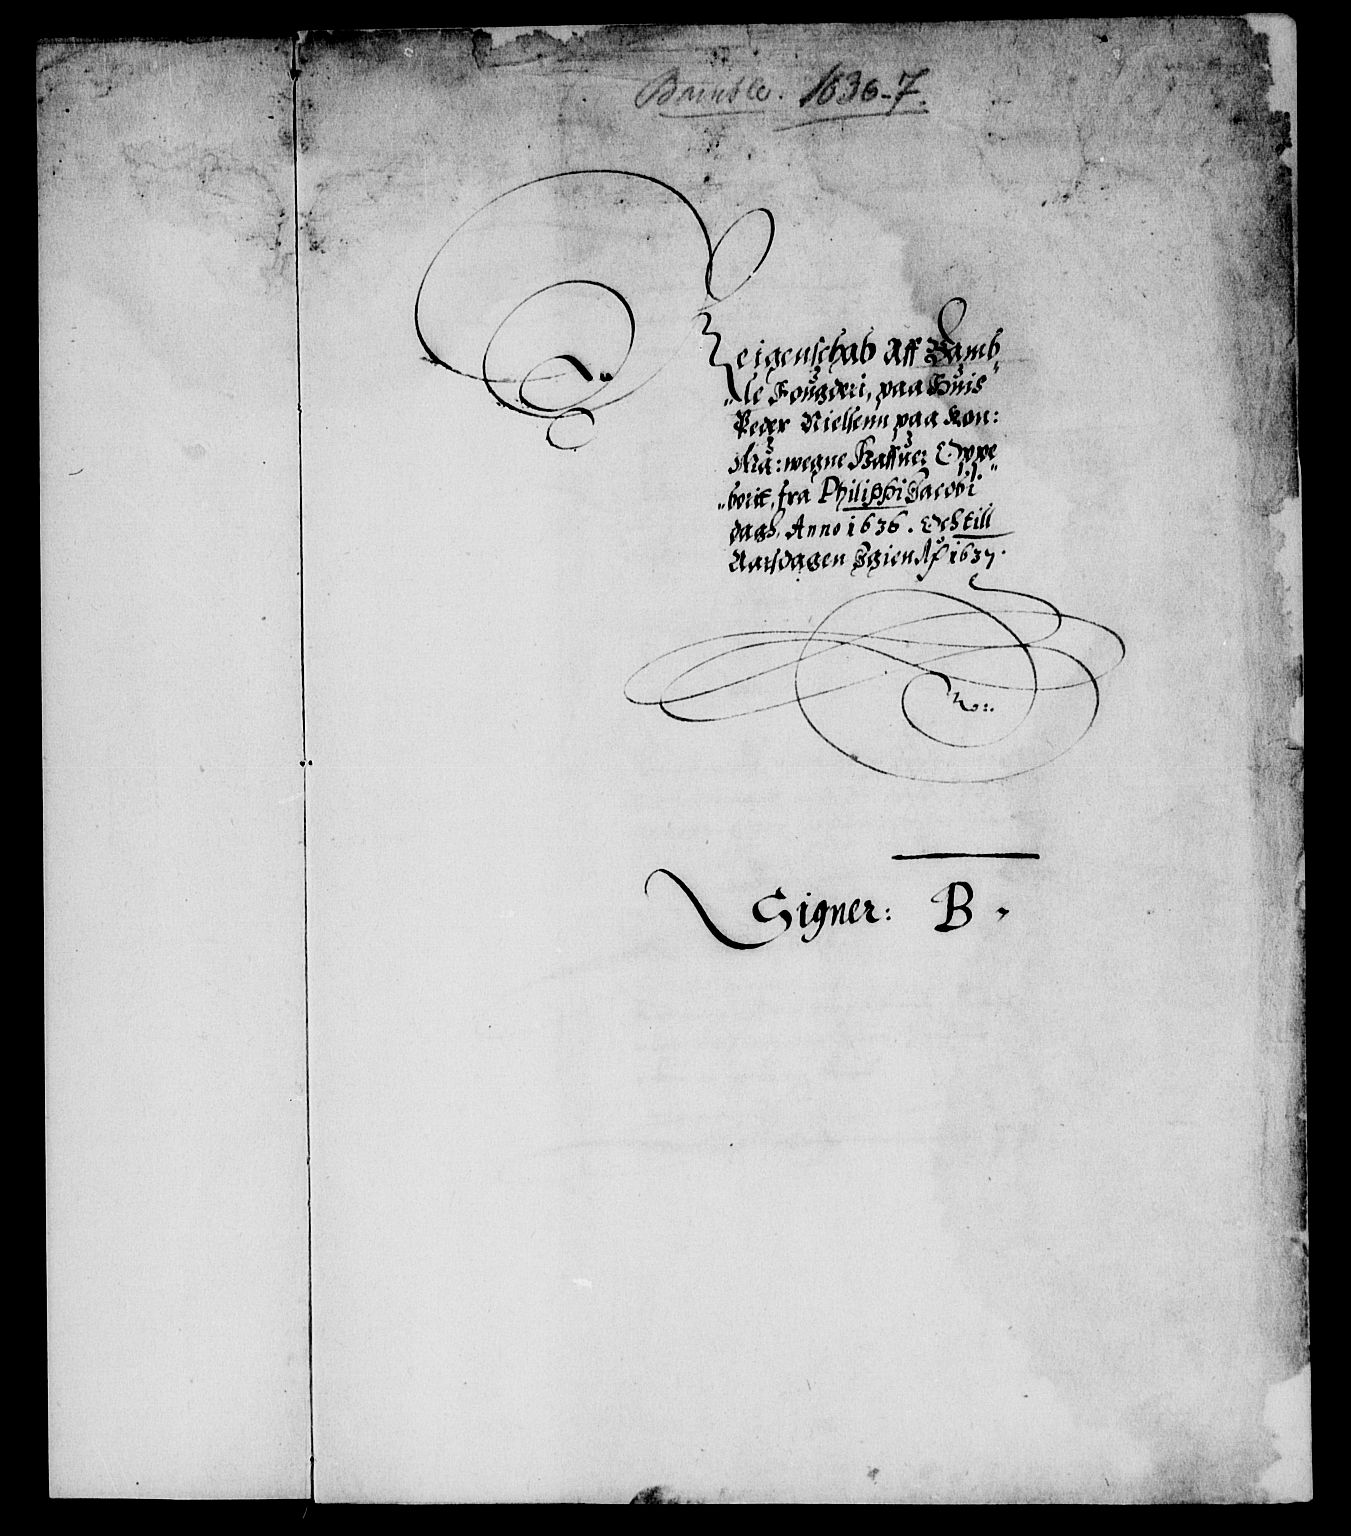 Bamble. 1636-7.
Reigenschab Aff Bamb„
„le Fougderi, paa Huis
Peder Nielsenn paa Kon:
Ma: wegne Haffuer Oppe„
„borit, fra Philippi Jacobi
dagh, Anno 1636. Och till
Aarsdagen Igien Aff 1637.
Signer: B.